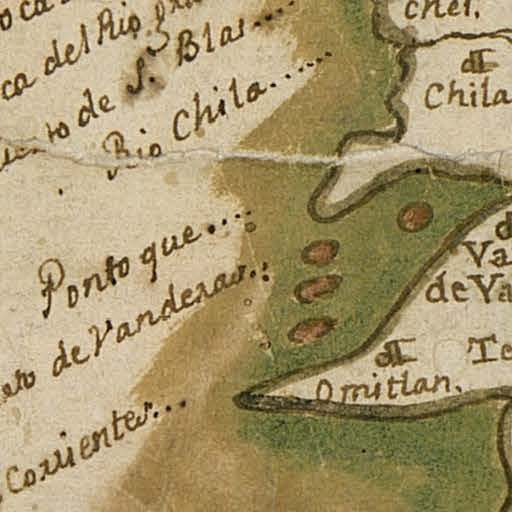 oca
ca del Rio gra
de S. Blas....
Rio Chila......
Ponto que....
de Vanderas..:
Corrientes...
chel.
Chila
Va
de Va
Te
Omitlan.